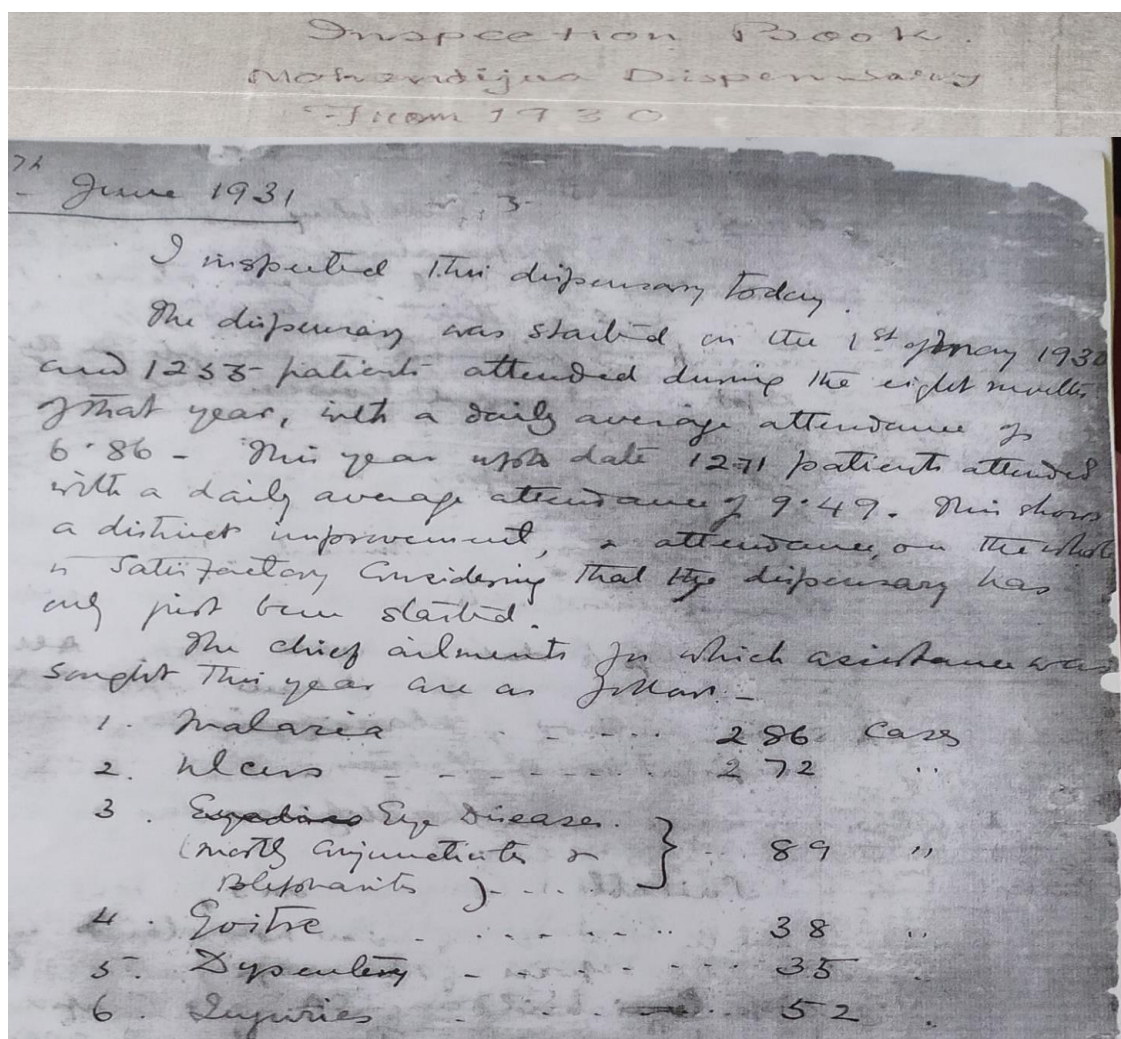 Inspection Book.
Dispensary
From 1930
7th June 1931
3
I inspected this dispensary today.
The dispensary was started on the 1st of May 1930
and 1255 patients attended during the eight months
of that year, with a daily average attendance of
6.86 - This year upto date 1271 patients attended
with a daily average attendance of 9.49. This shows
a distinct improvement, & attendance, on the whole
is satisfactory considering that the dispensary has
only just been started.
The chief ailments for which assistance was
sought this year are as follows. -
1. Malaria - - - - - 286 cases
2. Ulcers - - - - - - - 272 "
3. Eye Diseases.
(mostly conjunctivitis & } .. 89 "
Blepharitis ) - ...
4. Goitre - . - - - .. 38 "
5. Dysentery - - - - - - 35 "
6. Injuries - - - - 52 "